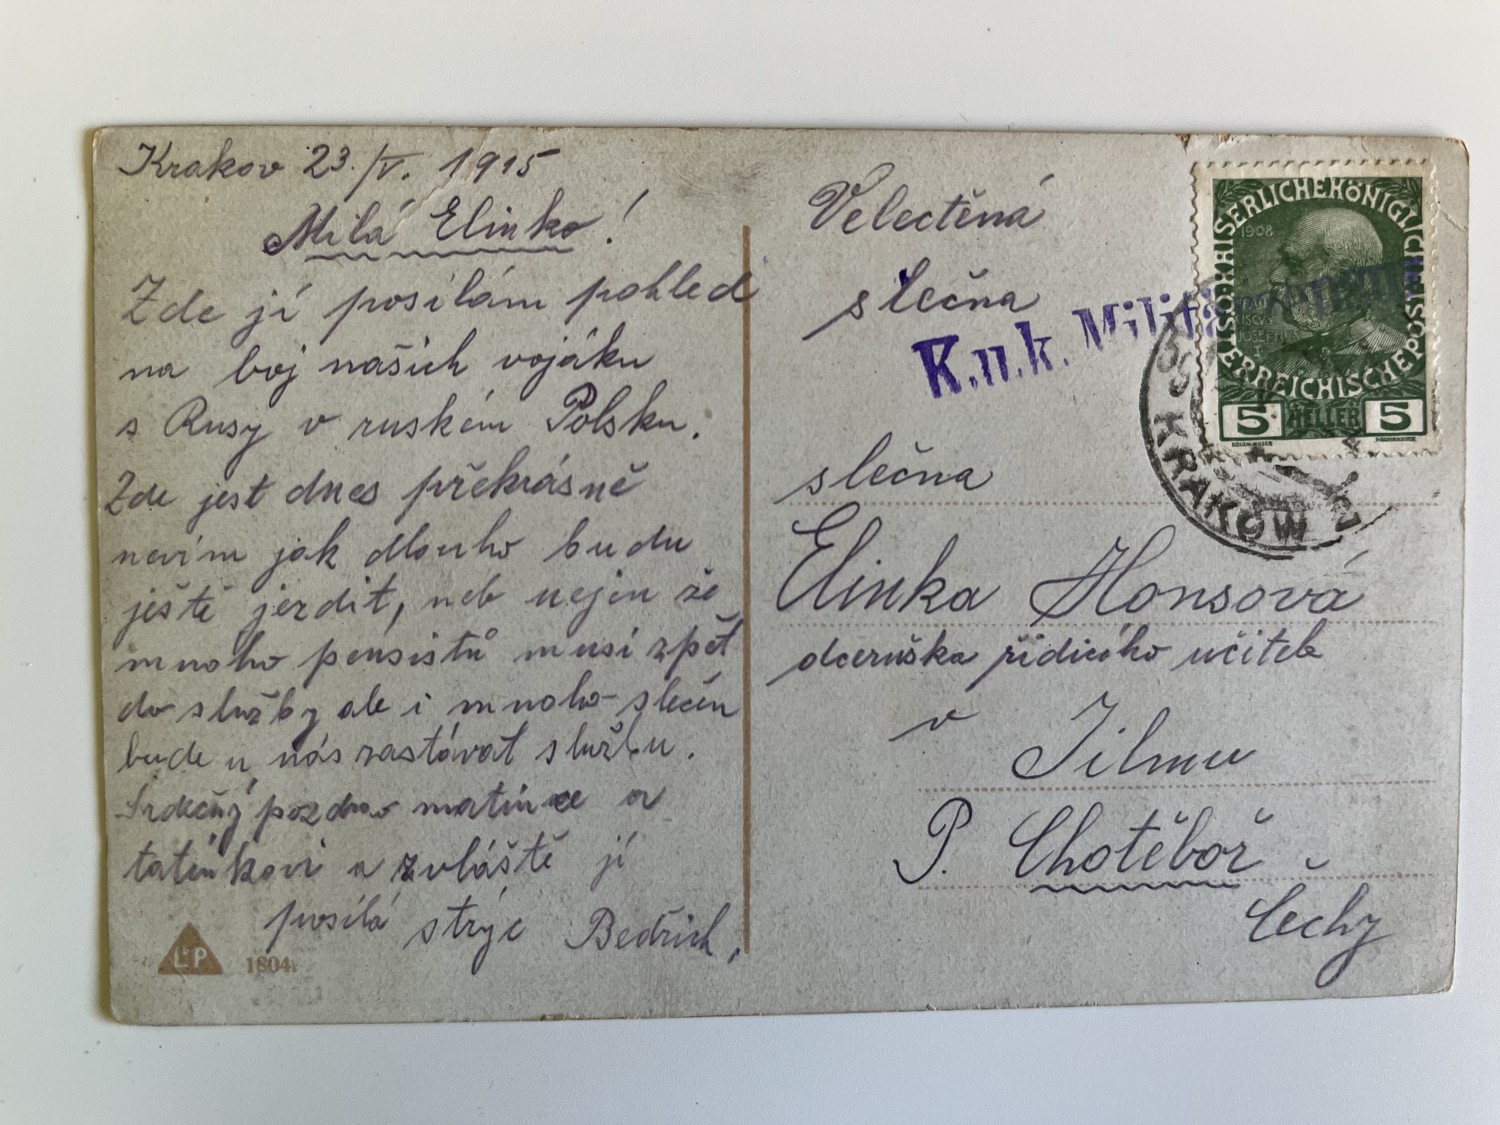 Krakov 23./V. 1915
Milá Elinko!
Zde jí posílám pohled
na boj našich vojáku
s Rusy v ruském Polsku.
Zde jest dnes překrásně
nevím jak dlouho budu
ještě jezdit, neb nejen že
mnoho pensistů musí zpět
do služby ale i mnoho slečen
bude u nás zastávat službu.
Srdečný pozdrav matince a
tatínkovi a zvláště jí
posílá strýc Bedřich.
L&P 1804.
Velectěná
slečna
K.u.k. Militärzensur
slečna
Elinka Honsová
dceruška řídícího učitele
v Jilmu
P. Chotěboř
Čechy
KAISERLICHEKÖNIGLICHE
ÖSTERREICHISCHEPOST
1908
5 HELLER 5
KRAKÓW 2